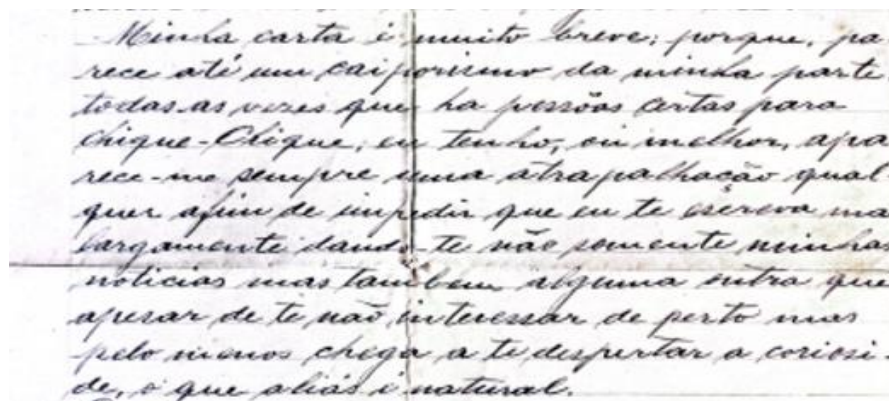 Minha carta é muito breve; porque, pa
rece até um caiporismo da minha parte
todas as vezes que ha pessôas certas para
Chique-Chique, eu tenho, ou melhor, apa
rece-me sempre uma atrapalhação qual-
quer afim de impedir que eu te escreva ma
largamente dando-te não somente minhas
noticias mas tambem alguma outra que
apesar de te não interessar de perto mas
pelo menos chega a te despertar a coriosi-
de, o que aliás é natural.